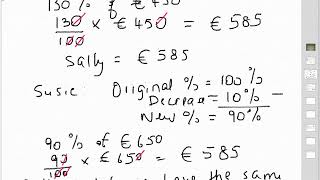 130% of € 450
130/100 × € 450 = € 585
Sally = € 585
Susie: Original % = 100%
Decrease = 10% —
New % = 90%
90% of € 650
90/100 × € 650 = € 585
have the same